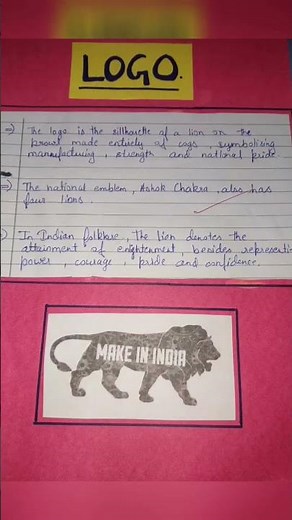 LOGO.
=) The logo is the sillhouette of a lion on the
prowl made entirely of cogs, symbolising
manufacturing, strength and national pride
=) The national emblem, Ashok Chakra, also has
four lions.
) In Indian folklore, the lion denotes the
attainment of enlightenment, besides representin
power, courage, pride and confidence.
MAKE IN INDIA